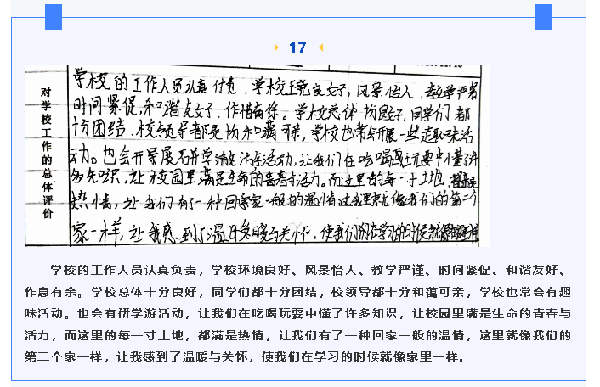 17
对学校工作的总体评价
学校的工作人员认真负责，学校环境良好，风景怡人，教学严谨
时间紧促，和谐友好，作息有余。学校总体十分良好，同学们都
十分团结，校领导都是均和蔼可亲，学校也常会开展一些趣味活
动。也会开展研学游活动，让我们在吃喝玩耍中懂
多知识，让校园里满是生命的青春与活力。而这里的每一寸土地，
热情，让我们有了一种回家一般的温情，这里就像我们的第二个
家一样，让我感到了温暖与关怀，使我们在学习的时候就像
学校的工作人员认真负责，学校环境良好、风景怡人、教学严谨、时间紧促、和谐友好、
作息有余。学校总体十分良好，同学们都十分团结，校领导都十分和蔼可亲，学校也常会有趣
味活动。也会有研学游活动，让我们在吃喝玩耍中懂了许多知识，让校园里满是生命的青春与
活力，而这里的每一寸土地，都满是热情，让我们有了一种回家一般的温情，这里就像我们的
第二个家一样，让我感到了温暖与关怀，使我们在学习的时侯就像家里一样。